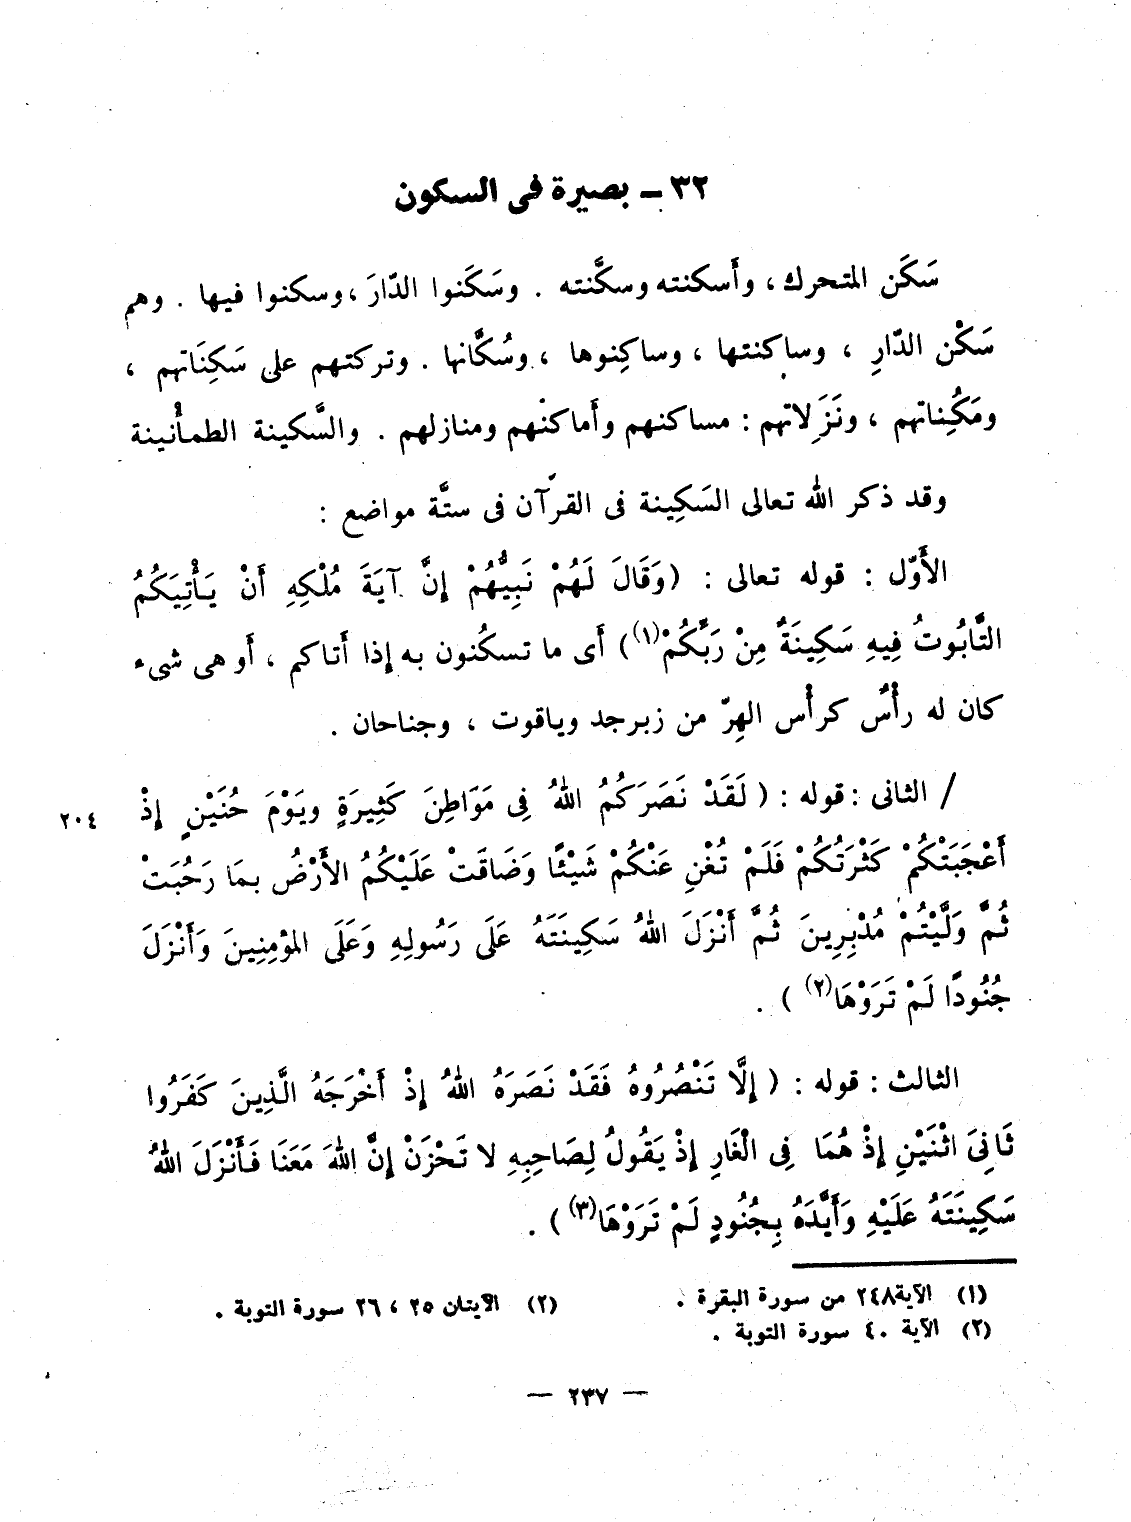 ٣٢ ـ بصيرة فى السكون
سَكَن المتحرك ، وأَسكنته وسكَّنته . وسَكَنوا الدّارَ ، وسكنوا فيها . وهم
سَكْن الدّارِ ، وساكنتها ، وساكِنوها ، وسُكَّانها . وتركتهم على سَكِنَاتهم ،
ومَكِناتهم ، ونَزَلاتهم : مساكنهم وأَماكنهم ومنازلهم . والسَّكينة الطمأْنينة
وقد ذكر الله تعالى السَكِينة فى القرآن فى ستَّة مواضع :
الأَوّل : قوله تعالى : ( وَقَالَ لَهُمْ نَبِيُّهُمْ إِنَّ آيَةَ مُلْكِهِ أَنْ يَأْتِيَكُمُ
التَّابُوتُ فِيهِ سَكِينَةٌ مِنْ رَبِّكُمْ(١) ) أَى ما تسكُنون به إِذا أَتاكم ، أَو هى شىء
كان له رأْسٌ كرأْس الهِرّ من زبرجد وياقوت ، وجناحان .
/ الثانى : قوله : ( لَقَدْ نَصَرَكُمُ اللهُ فِى مَوَاطِنَ كَثِيرَةٍ ويَوْمَ حُنَيْنٍ إِذْ ٢٠٤
أَعْجَبَتْكُمْ كَثْرَتُكُمْ فَلَمْ تُغْنِ عَنْكُمْ شَيْئًا وَضَاقَتْ عَلَيْكُمُ الأَرْضُ بمَا رَحُبَتْ
ثُمَّ وَلَّيْتُمْ مُدْبِرِينَ ثُمَّ أَنْزَلَ اللهُ سَكِينَتَهُ عَلَى رَسُولِهِ وَعَلَى المؤمِنِينَ وَأَنْزَلَ
جُنُودًا لَمْ تَرَوْهَا(٢) ) .
الثالث : قوله : ( إِلَّا تَنْصُرُوهُ فَقَدْ نَصَرَهُ اللهُ إِذْ أَخْرَجَهُ الَّذِينَ كَفَرُوا
ثَانِىَ اثْنَيْنِ إِذْ هُمَا فِى الْغَارِ إِذْ يَقُولُ لِصَاحِبِهِ لا تَحْزَنْ إِنَّ اللهَ مَعَنَا فَأَنْزَلَ اللهُ
سَكِينَتَهُ عَلَيْهِ وَأَيَّدَهُ بِجُنُودٍ لَمْ تَرَوْهَا(٣) ) .
(١) الآية٢٤٨ من سورة البقرة . (٢) الآيتان ٢٥ ، ٢٦ سورة التوبة .
(٣) الآية ٤٠ سورة التوبة .
— ٢٣٧ —